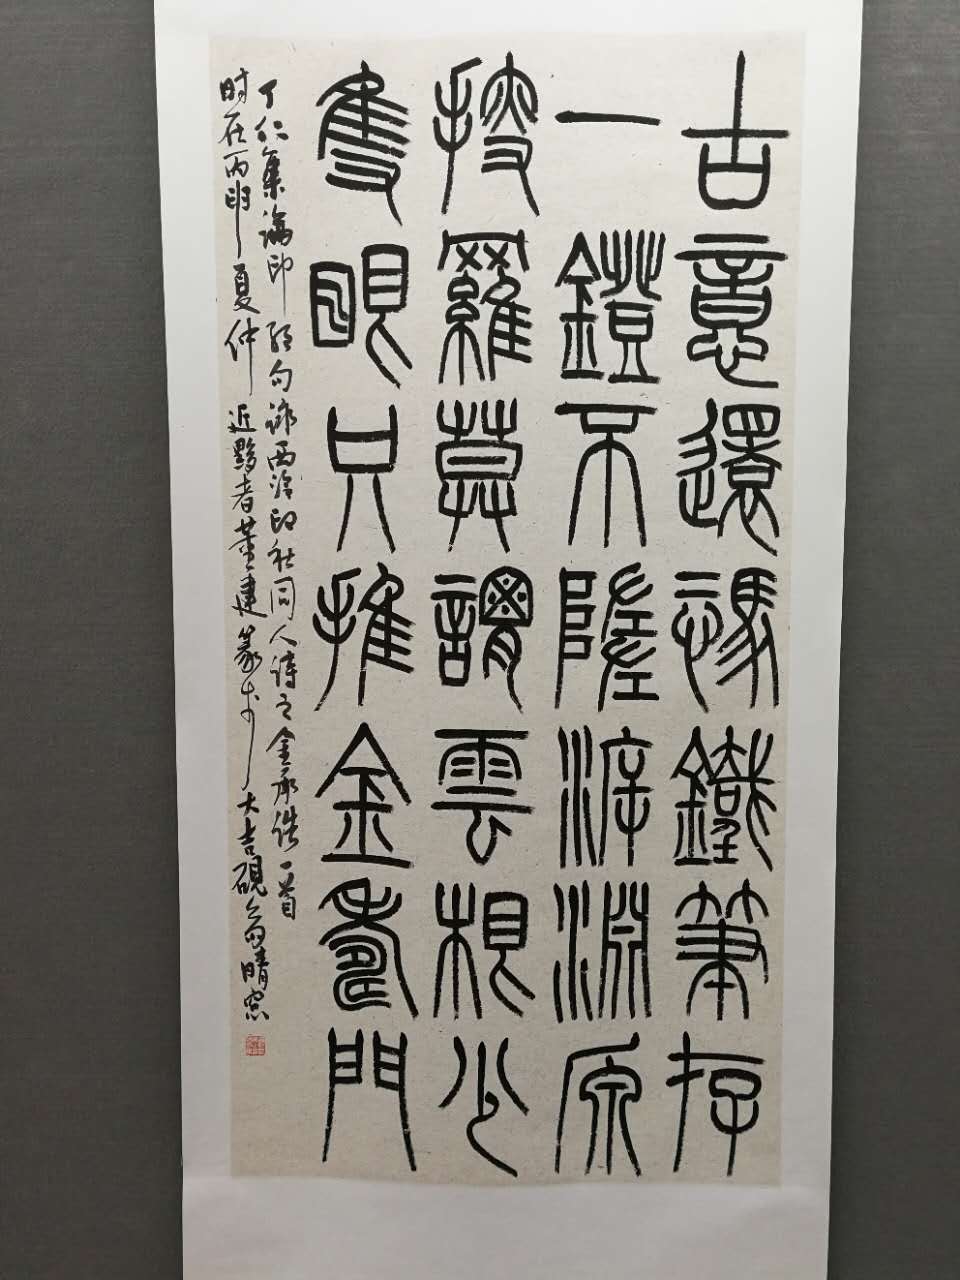 古意還憑鐵筆存
一鐙不墜泝淵源
搜羅莫謂雲根少
隻眼只推金壽門
丁仁集論印絕句詠西泠印社同人詩之金承誥一首
时在丙申夏仲近黟者董建篆于大吉硯齋晴窓